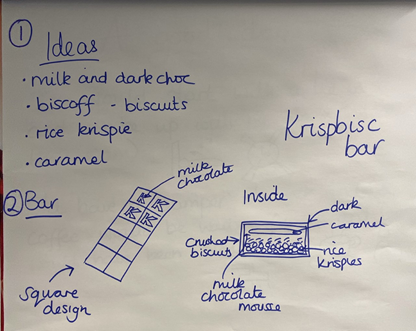 ① Ideas
• milk and dark choc
• biscoff - biscuits
• rice krispie
• caramel
Krispbisc
bar
② Bar
milk
chocolate
square
design
Inside
dark
caramel
crushed
biscuits
rice
krispies
milk
chocolate
mousse